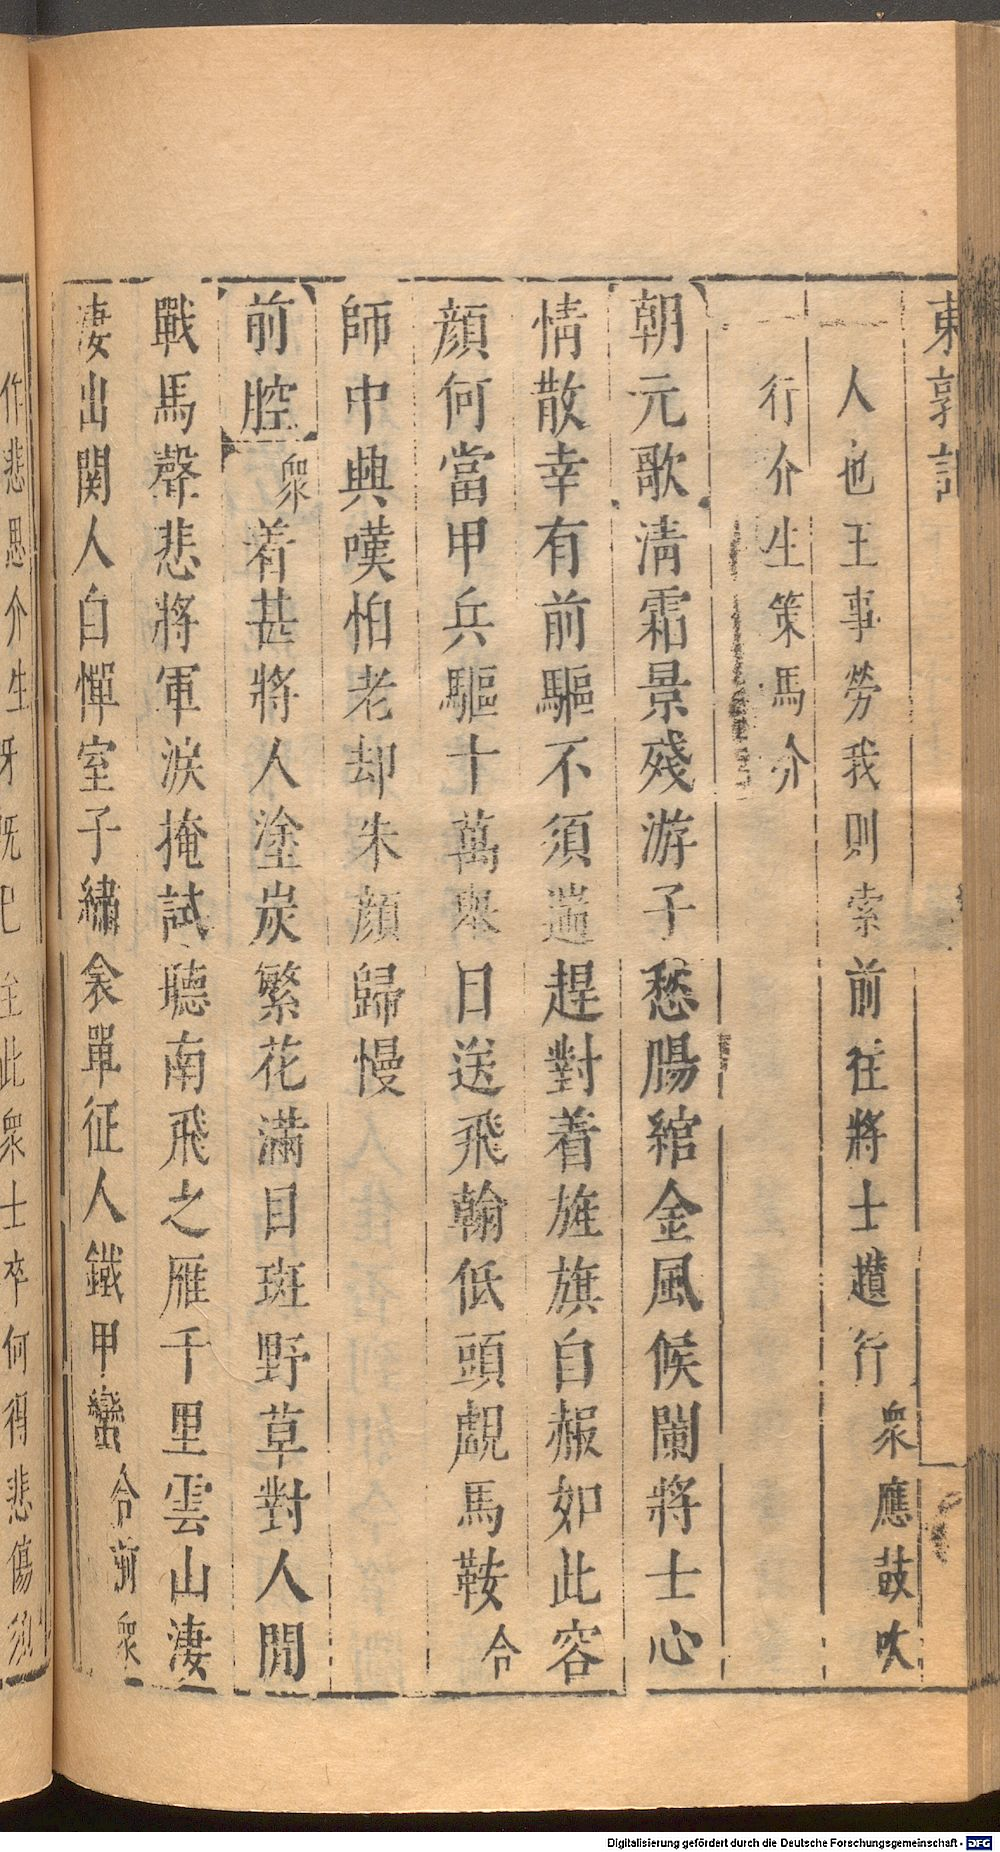 東郭記
人也王事勞我則索前往將士趲行衆應鼓吹
行介生策馬介
朝元歌清霜景殘游子愁腸綰金風候闌將士心
情散幸有前驅不須遄趕對着旌旗自赧如此容
顔何當甲兵驅十萬舉日送飛翰低頭覷馬鞍合
師中興嘆怕老却朱顔歸慢
前腔衆着甚將人塗炭繁花滿目斑野草對人閒
戰馬聲悲將軍淚掩試聽南飛之雁千里雲山淒
淒出関人自憚室子繡衾單征人鐵甲蠻合前衆
作悲思介生呀旣已至此衆士卒何得悲傷須
Digitalisierung gefördert durch die Deutsche Forschungsgemeinschaft - DFG